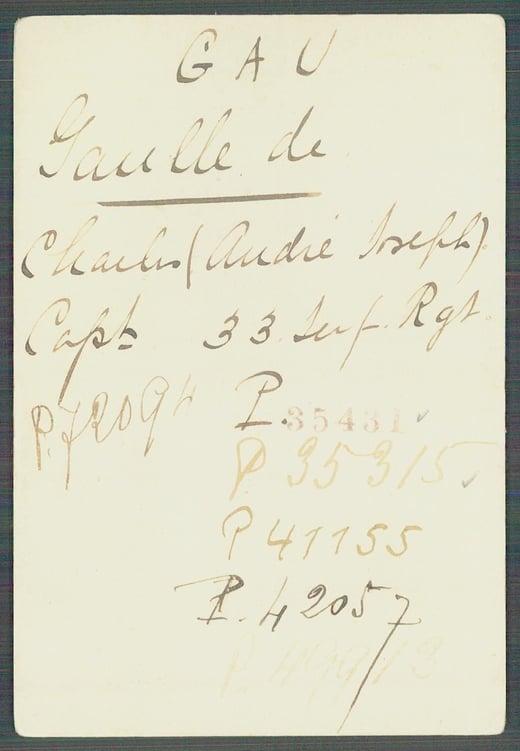 GAU
Gaulle de
Charles (André Joseph).
Capt 33. Inf. Rgt.
P.72094 P.35431
P 35315
P 41155
P. 42057